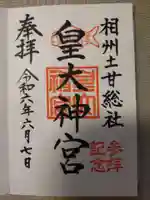 相州土甘総社
皇大神宮
奉拝
令和六年六月七日
参拝
記念